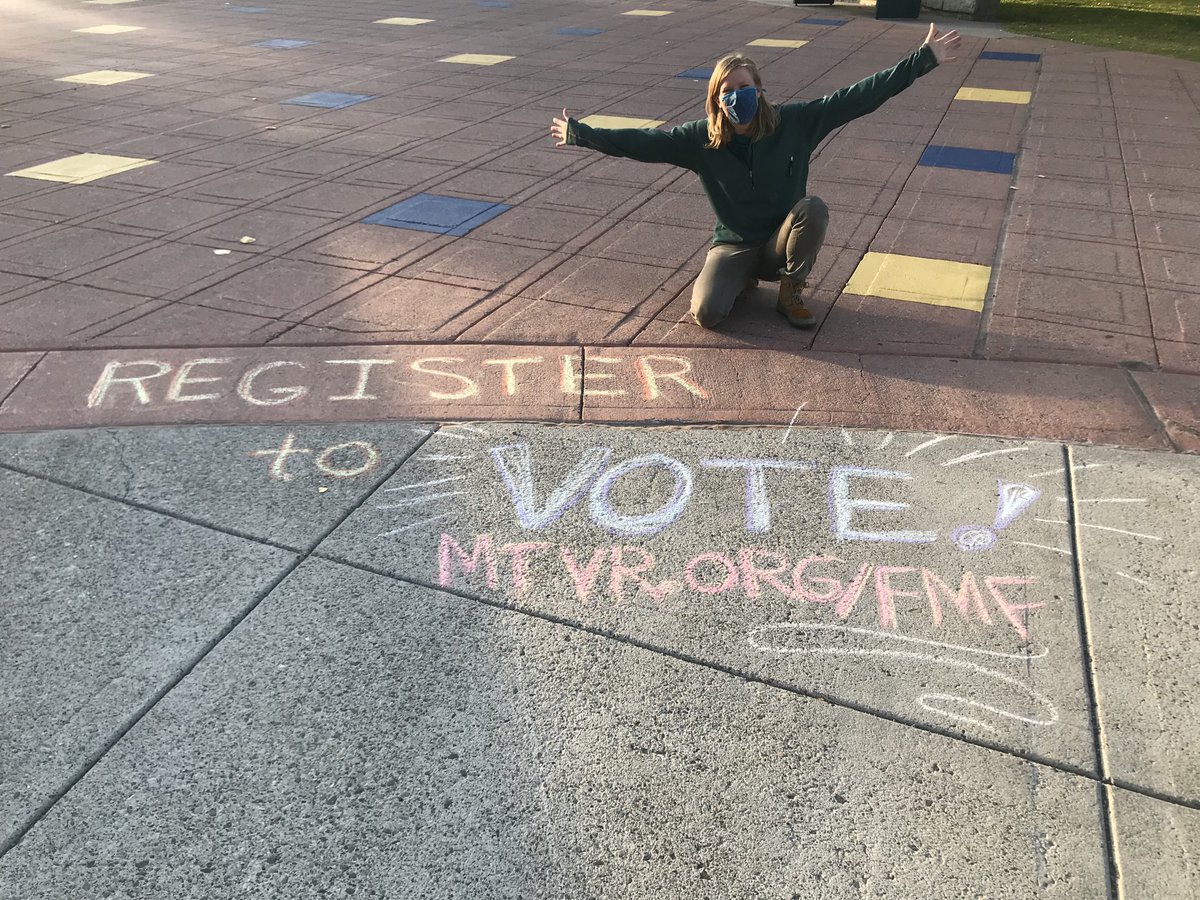 REGISTER
to
VOTE!
MTVR.ORG/FMF